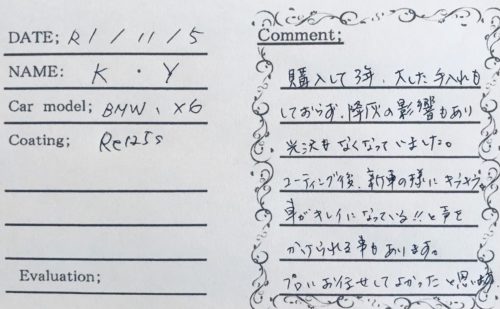 DATE; R1/11/5
NAME: K・Y
Car model; BMW、X6
Coating;
Evaluation;
Comment;
購入して3年、大した手入れも
しておらず、降灰の影響もあり
光沢もなくなっていました。
コーティング後、新車の様にキラキラ。
車がキレイになっている!!と声を
かけられる事もあります。
プロにお任せしてよかったと思います